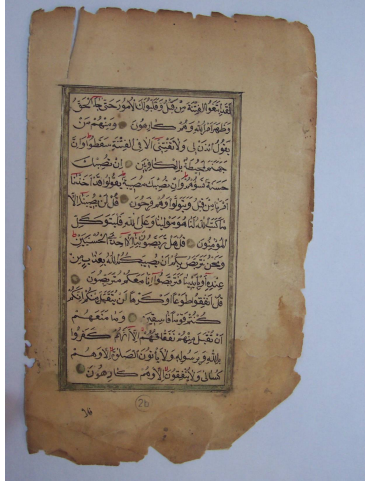 لقد ابتغوا الفتنة من قبل وقلبوا لك الامور حتى جاء الحق
وظهر امر الله وهم كارهون ومنهم من
يقول ائذن لى ولا تفتنى الا فى الفتنة سقطوا وان
جهنم لمحيطة بالكافرين ان تصبك
حسنة تسؤهم وان تصبك مصيبة يقولوا قد اخذنا
امرنا من قبل ويتولوا وهم فرحون قل لن يصيبنا الا
ما كتب الله لنا هو مولينا وعلى الله فليتوكل
المؤمنون قل هل تربصون بنا الا احدى الحسنيين
ونحن نتربص بكم ان يصيبكم الله بعذاب من
عنده او بايدينا فتربصوا انا معكم متربصون
قل انفقوا طوعا او كرها لن يتقبل منكم انكم
كنتم قوما فاسقين وما منعهم
ان تقبل منهم نفقاتهم الا انهم كفروا
بالله وبرسوله ولا يأتون الصلوة الا وهم
كسالى ولا ينفقون الا وهم كارهون
(26)
فلا